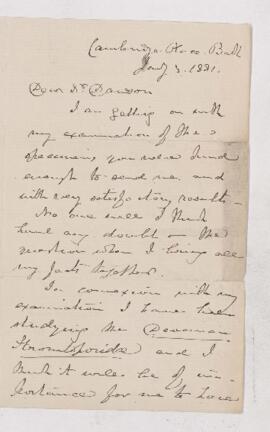 Cambridge Place Balt
Jany 3. 1881.
Dear Dr Dawson
I am getting on with
my examination of the
specimens you were kind
enough to send me and
with very satisfactory results.
No one will I think
have any doubt on the
question when I bring all
my facts together.
In connexion with my
examination I have been
studying the Devonian
Stromatoporidæ and I
think it will be of im-
portance for me to have